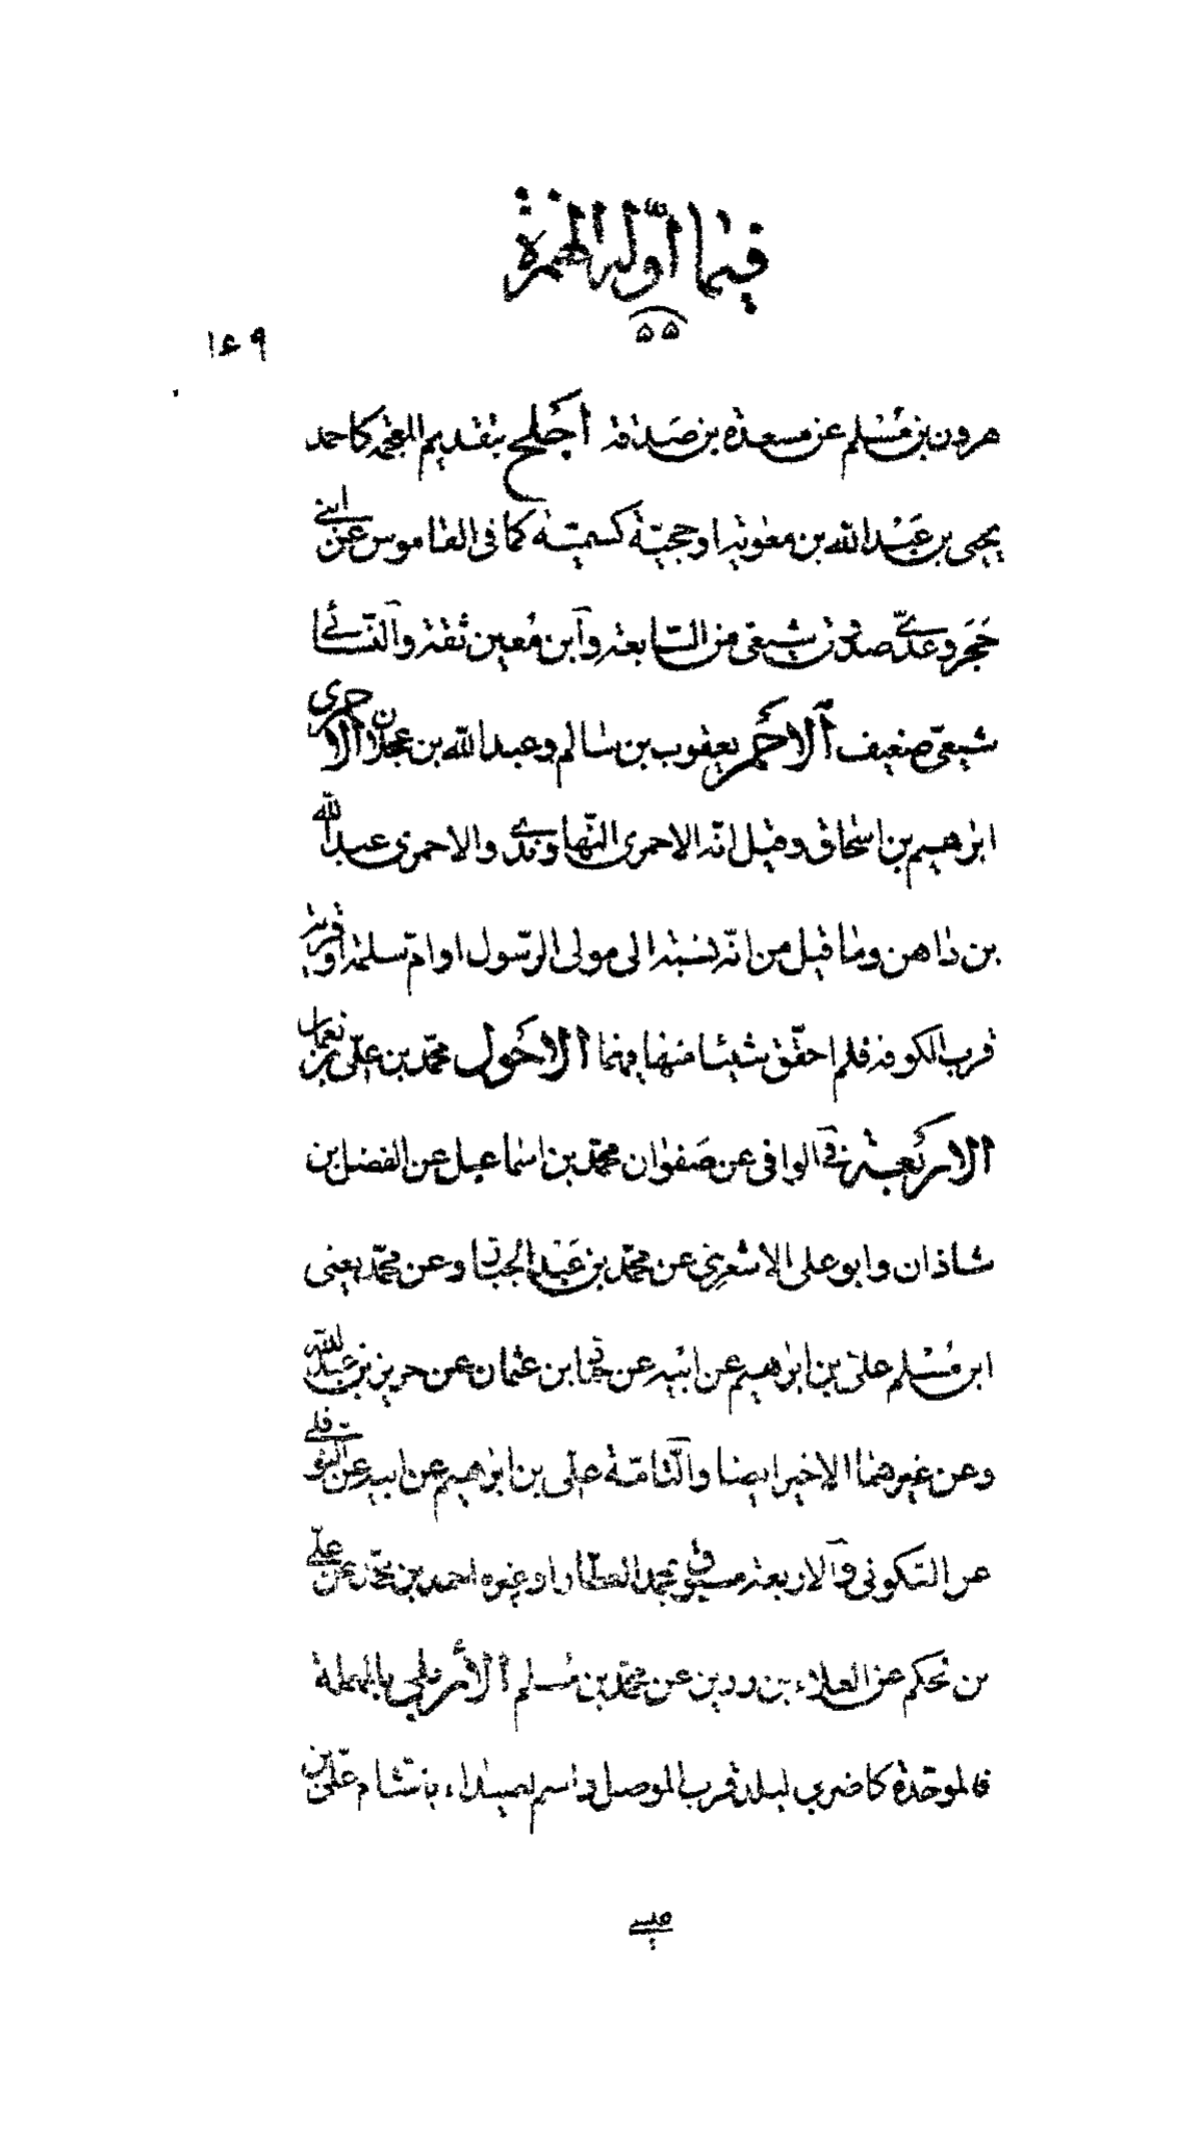 فيما اوّله الهمزة
٥٥
١٤٩
هرون بن مُسْلم عن مسعدة بن صَدقة اَجلَح بتقديم المعجمة كاحمد
يحيى بن عَبْد الله بن معوية او حجيّة كسميّة كما فى القاموس عن ابنى
حَجَر وعدىّ صدوق شيعى من السّابعة وآبن مُعين ثقة وآلنّسائى
شيعىّ ضعيف اَلاحمَر يعقوب بن سالم وعبد الله بن عجلان الاحمرى
ابرهيم بن اسحاق وقيل انّه الاحمرى النّهاوندى والاحمرى عبد الله
بن داهن وما قيل من انّه نسبة الى مولى الرّسول او امّ سلمة او قرية
قرب الكوفة فلم احقّق شيئا منها فيهما اَلاحوَل محمّد بن علىّ بن نعمان
اَلاربَعة فى الوافى عن صَفوان محمّد بن اسماعيل عن الفضل بن
شاذان وابو على الاشعرى عن محمّد بن عَبْد الجبّار وعن محمّد يعنى
ابن مُسْلم علىّ بن ابرهيم عن ابيه عن حمّاد بن عثمان عن حريز بن عبد الله
وعن غيرهما الاخير ايضا وآلثامنة علىّ بن ابرهيم عن ابيه عن النّوفلى
عن السّكونى وآلاربعة محمد العطّار او غيره احمد بن محمّد عن علىّ
بن الحكم عن العلاء بن رزين عن محمّد بن مُسلم اَلاَربلى بالمهملة
فالموحّدة كاضربى لبلد قرب الموصل واسم لصيداء بالشّام علىّ بن
عيسى